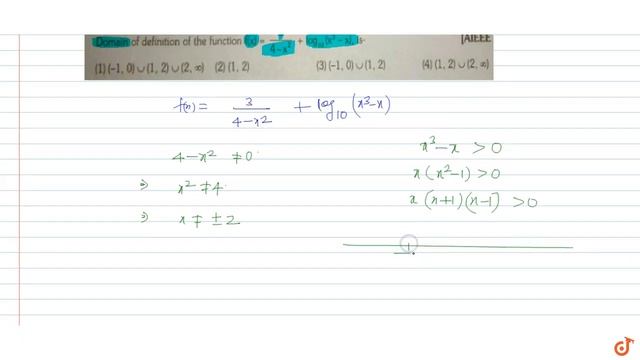 Domain of definition of the function f(x) = 3/(4-x²) + log₁₀(x³ - x), is- [AIEEE
(1) (-1, 0) ∪ (1, 2) ∪ (2, ∞) (2) (1, 2) (3) (-1, 0) ∪ (1, 2) (4) (1, 2) ∪ (2, ∞)
f(x) = 3/(4-x2) + log₁₀(x³-x)
4-x² ≠ 0
⇒ x² ≠ 4
⇒ x ≠ ±2
x³-x > 0
x(x²-1) > 0
x(x+1)(x-1) > 0